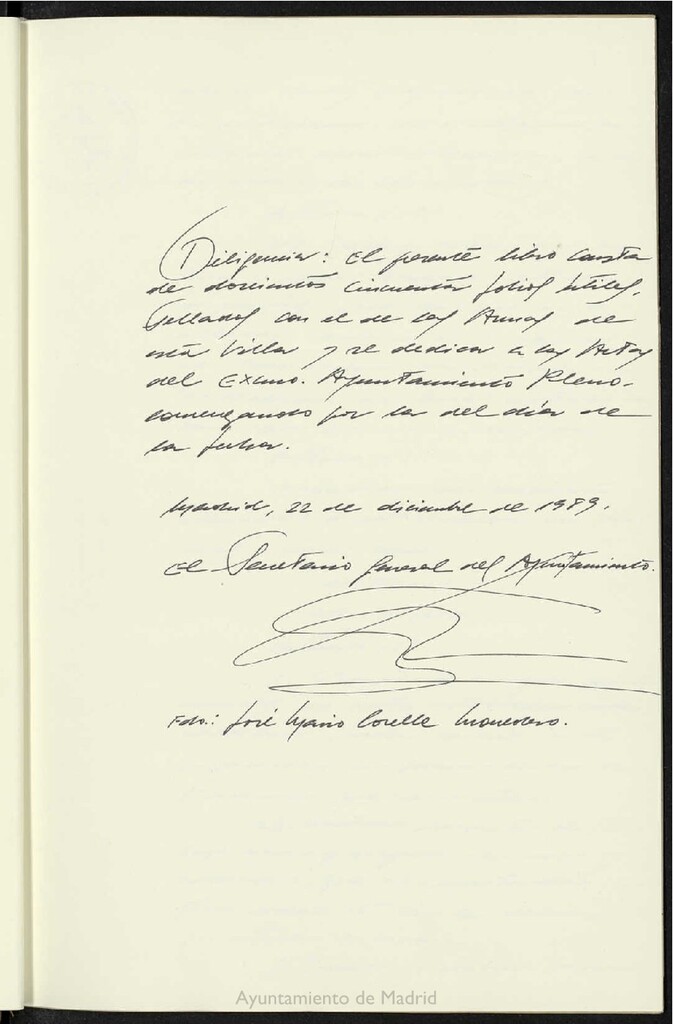 Diligencia: El presente libro consta
de doscientos cincuenta folios útiles,
sellados con el de las Armas de
esta Villa y se dedica a las Actas
del Excmo. Ayuntamiento Pleno,
comenzando por la del día de
la fecha.
Madrid, 22 de diciembre de 1989.
El Secretario General del Ayuntamiento.
Fdo.: José Mario Corella Monedero.
Ayuntamiento de Madrid